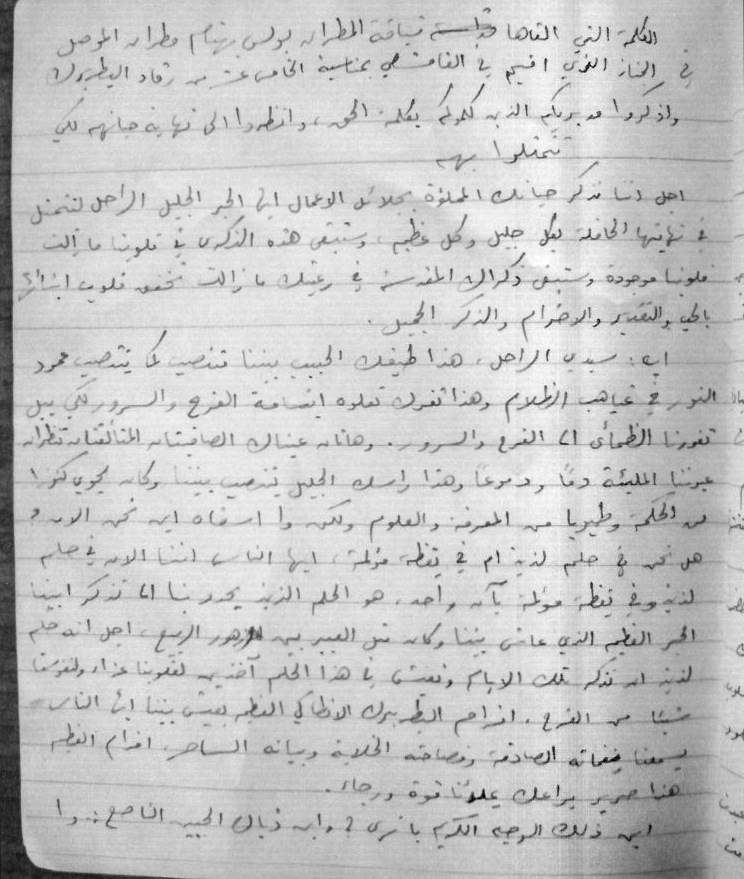 الكلمة التي القاها نيافة المطران بولس بهنام مطران الموصل
في الجناز الذي اقيم في القامشلي بمناسبة الخامس عشر من رقاد البطريرك
واذكروا مدبريكم الذين كلموكم بكلمة الحق، وانظروا الى نهاية حياتهم لكي
تتمثلوا بهم
اجل اننا نذكر حياتك المملؤة بجلائل الاعمال ايها الحبر الجليل الراحل لنتمثل
في نهايتها الحافلة بكل جليل وكل عظيم، وستبقى هذه الذكرى في قلوبنا ما زالت
قلوبنا موجودة وستبقى ذكراك المقدسة في رعيتك ما زالت تخفق قلوب ابنائها
بالحب والتقدير والاحترام والذكر الجميل.
ايه: سيدي الراحل، هذا طيفك الحبيب بيننا تنتصب كما ينتصب عمود
النور في غياهب الظلام وهذا ثغرك تعلوه ابتسامة الفرح والسرور لكي يبل
ثغورنا الظمأى الى الفرح والسرور. وهاتان عيناك الصافيتان المتألقتان تنظران
عيوننا المليئة دمًا ودموعًا وهذا راسك الجليل ينتصب بيننا وكان يحوي كنوزا
من الحكمة وطيوبا من المعرفة والعلوم ولكن وا اسفاه اين نحن الان و
هل نحن في حلم لذيذ ام في يقظة مؤلمة، ايها الناس اننا الان في حلم
لذيذ وفي يقظة مؤلمة بآن واحد، هو الحلم الذيذ يحدو بنا الى تذكر ابينا
الحبر العظيم الذي عاش بيننا وكان مثل العبير بين زهور الربيع، اجل انه حلم
لذيذ ان نذكر تلك الايام ونعيش في هذا الحلم آخذين لقلوبنا عزاء ولنفوسنا
شيئا من الفرح. افرام البطريرك الانطاكي العظيم يعيش بيننا ايها الناس
يسمعنا نغماته الصادقة وفصاحته الخلابة وبيانه الساحر، افرام العظيم
هذا صرير يراعك يملائنا قوة ورجاء.
اين ذلك الوجه الكريم يا ترى؟ واين ذياك الجبين الناصع: وا